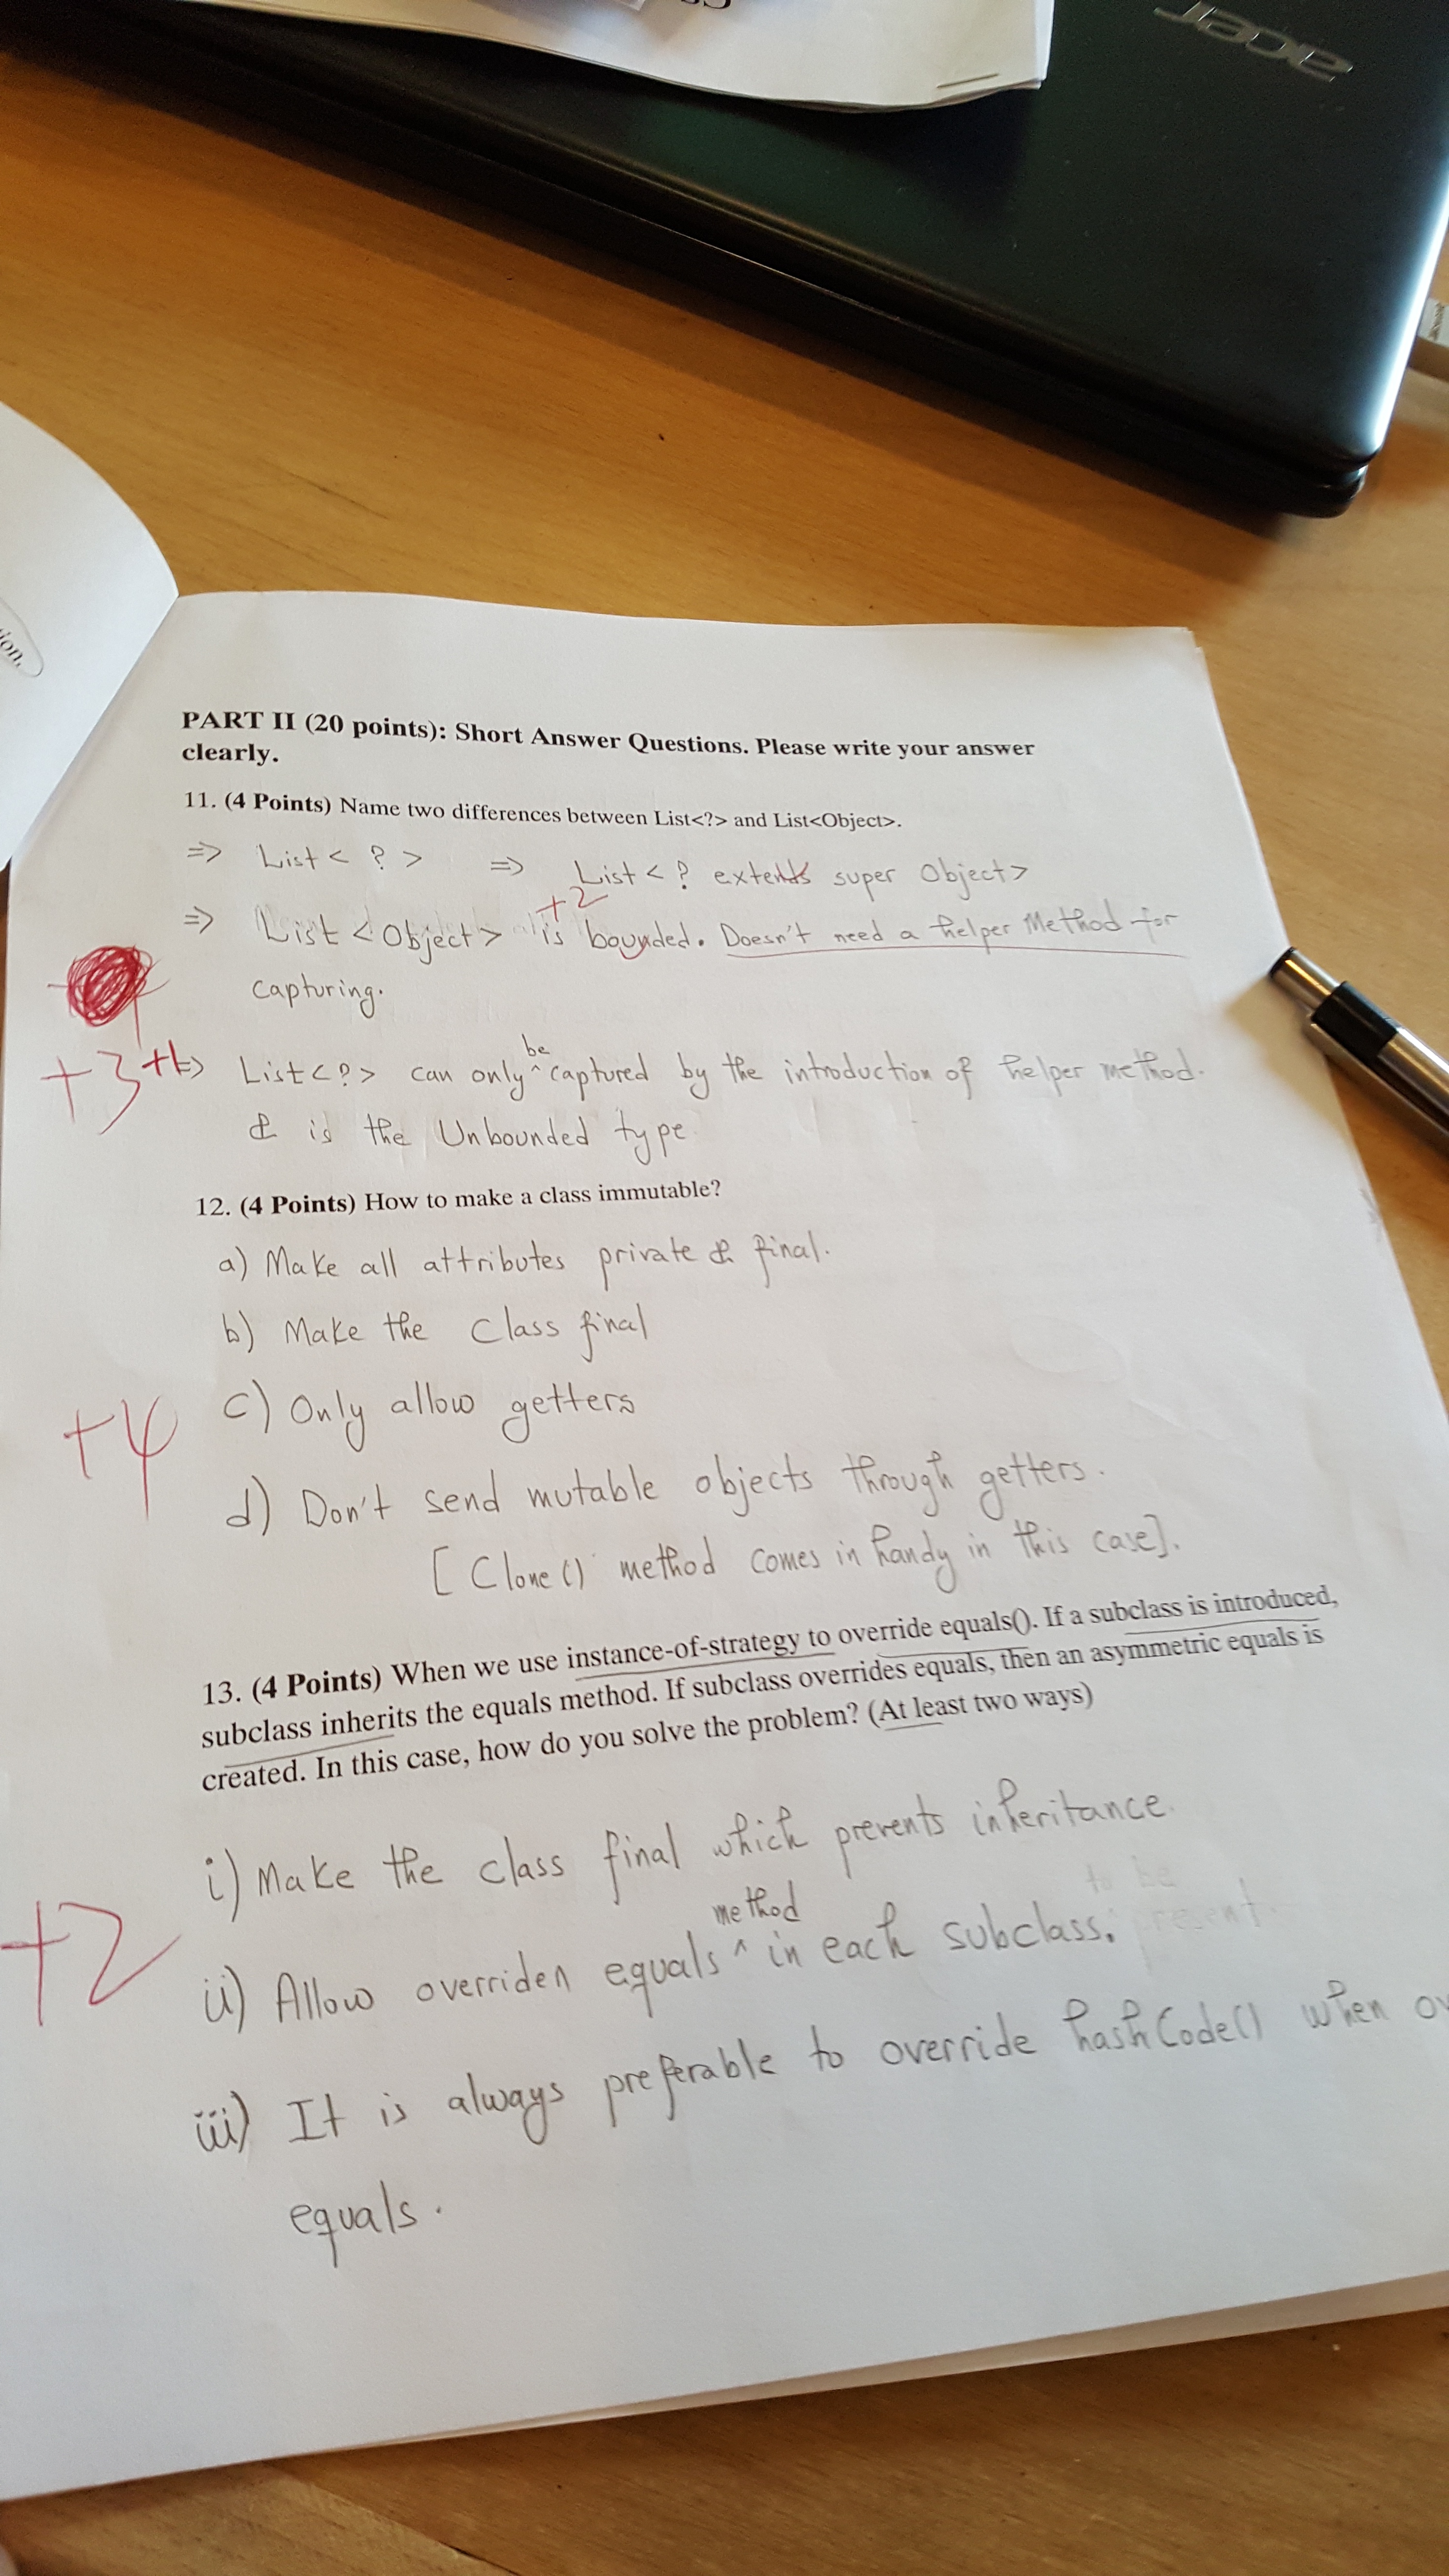 acer
ion.
PART II (20 points): Short Answer Questions. Please write your answer
clearly.
11. (4 Points) Name two differences between List<?> and List<Object>.
=> List < ? > => List < ? extends super Object>
+2
=> List <Object> is bounded. Doesn't need a helper Method for
capturing.
be
+3 +1 => List <?> can only ^ captured by the introduction of helper method.
& is the Unbounded type
12. (4 Points) How to make a class immutable?
a) Make all attributes private & final.
b) Make the Class final
+4 c) Only allow getters
d) Don't send mutable objects through getters.
[ Clone() method comes in handy in this case].
13. (4 Points) When we use instance-of-strategy to override equals(). If a subclass is introduced,
subclass inherits the equals method. If subclass overrides equals, then an asymmetric equals is
created. In this case, how do you solve the problem? (At least two ways)
i) Make the class final which prevents inheritance.
to be
method
+2 ii) Allow overriden equals ^ in each subclass.
iii) It is always preferable to override hashCode() when ov
equals.